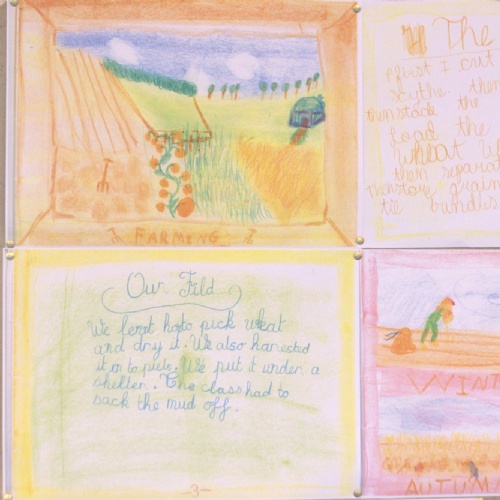 FARMING
The
First I cut
scythe. then
then stack the
Load the
Wheat
then separat
then store grain
tie bundles
Our Feild
We lernt how to pick wheat
and dry it. We also harvested
it in to piels. We put it under a
shelter. The class had to
sack the mud off.
-3-
WINT
AUTUM